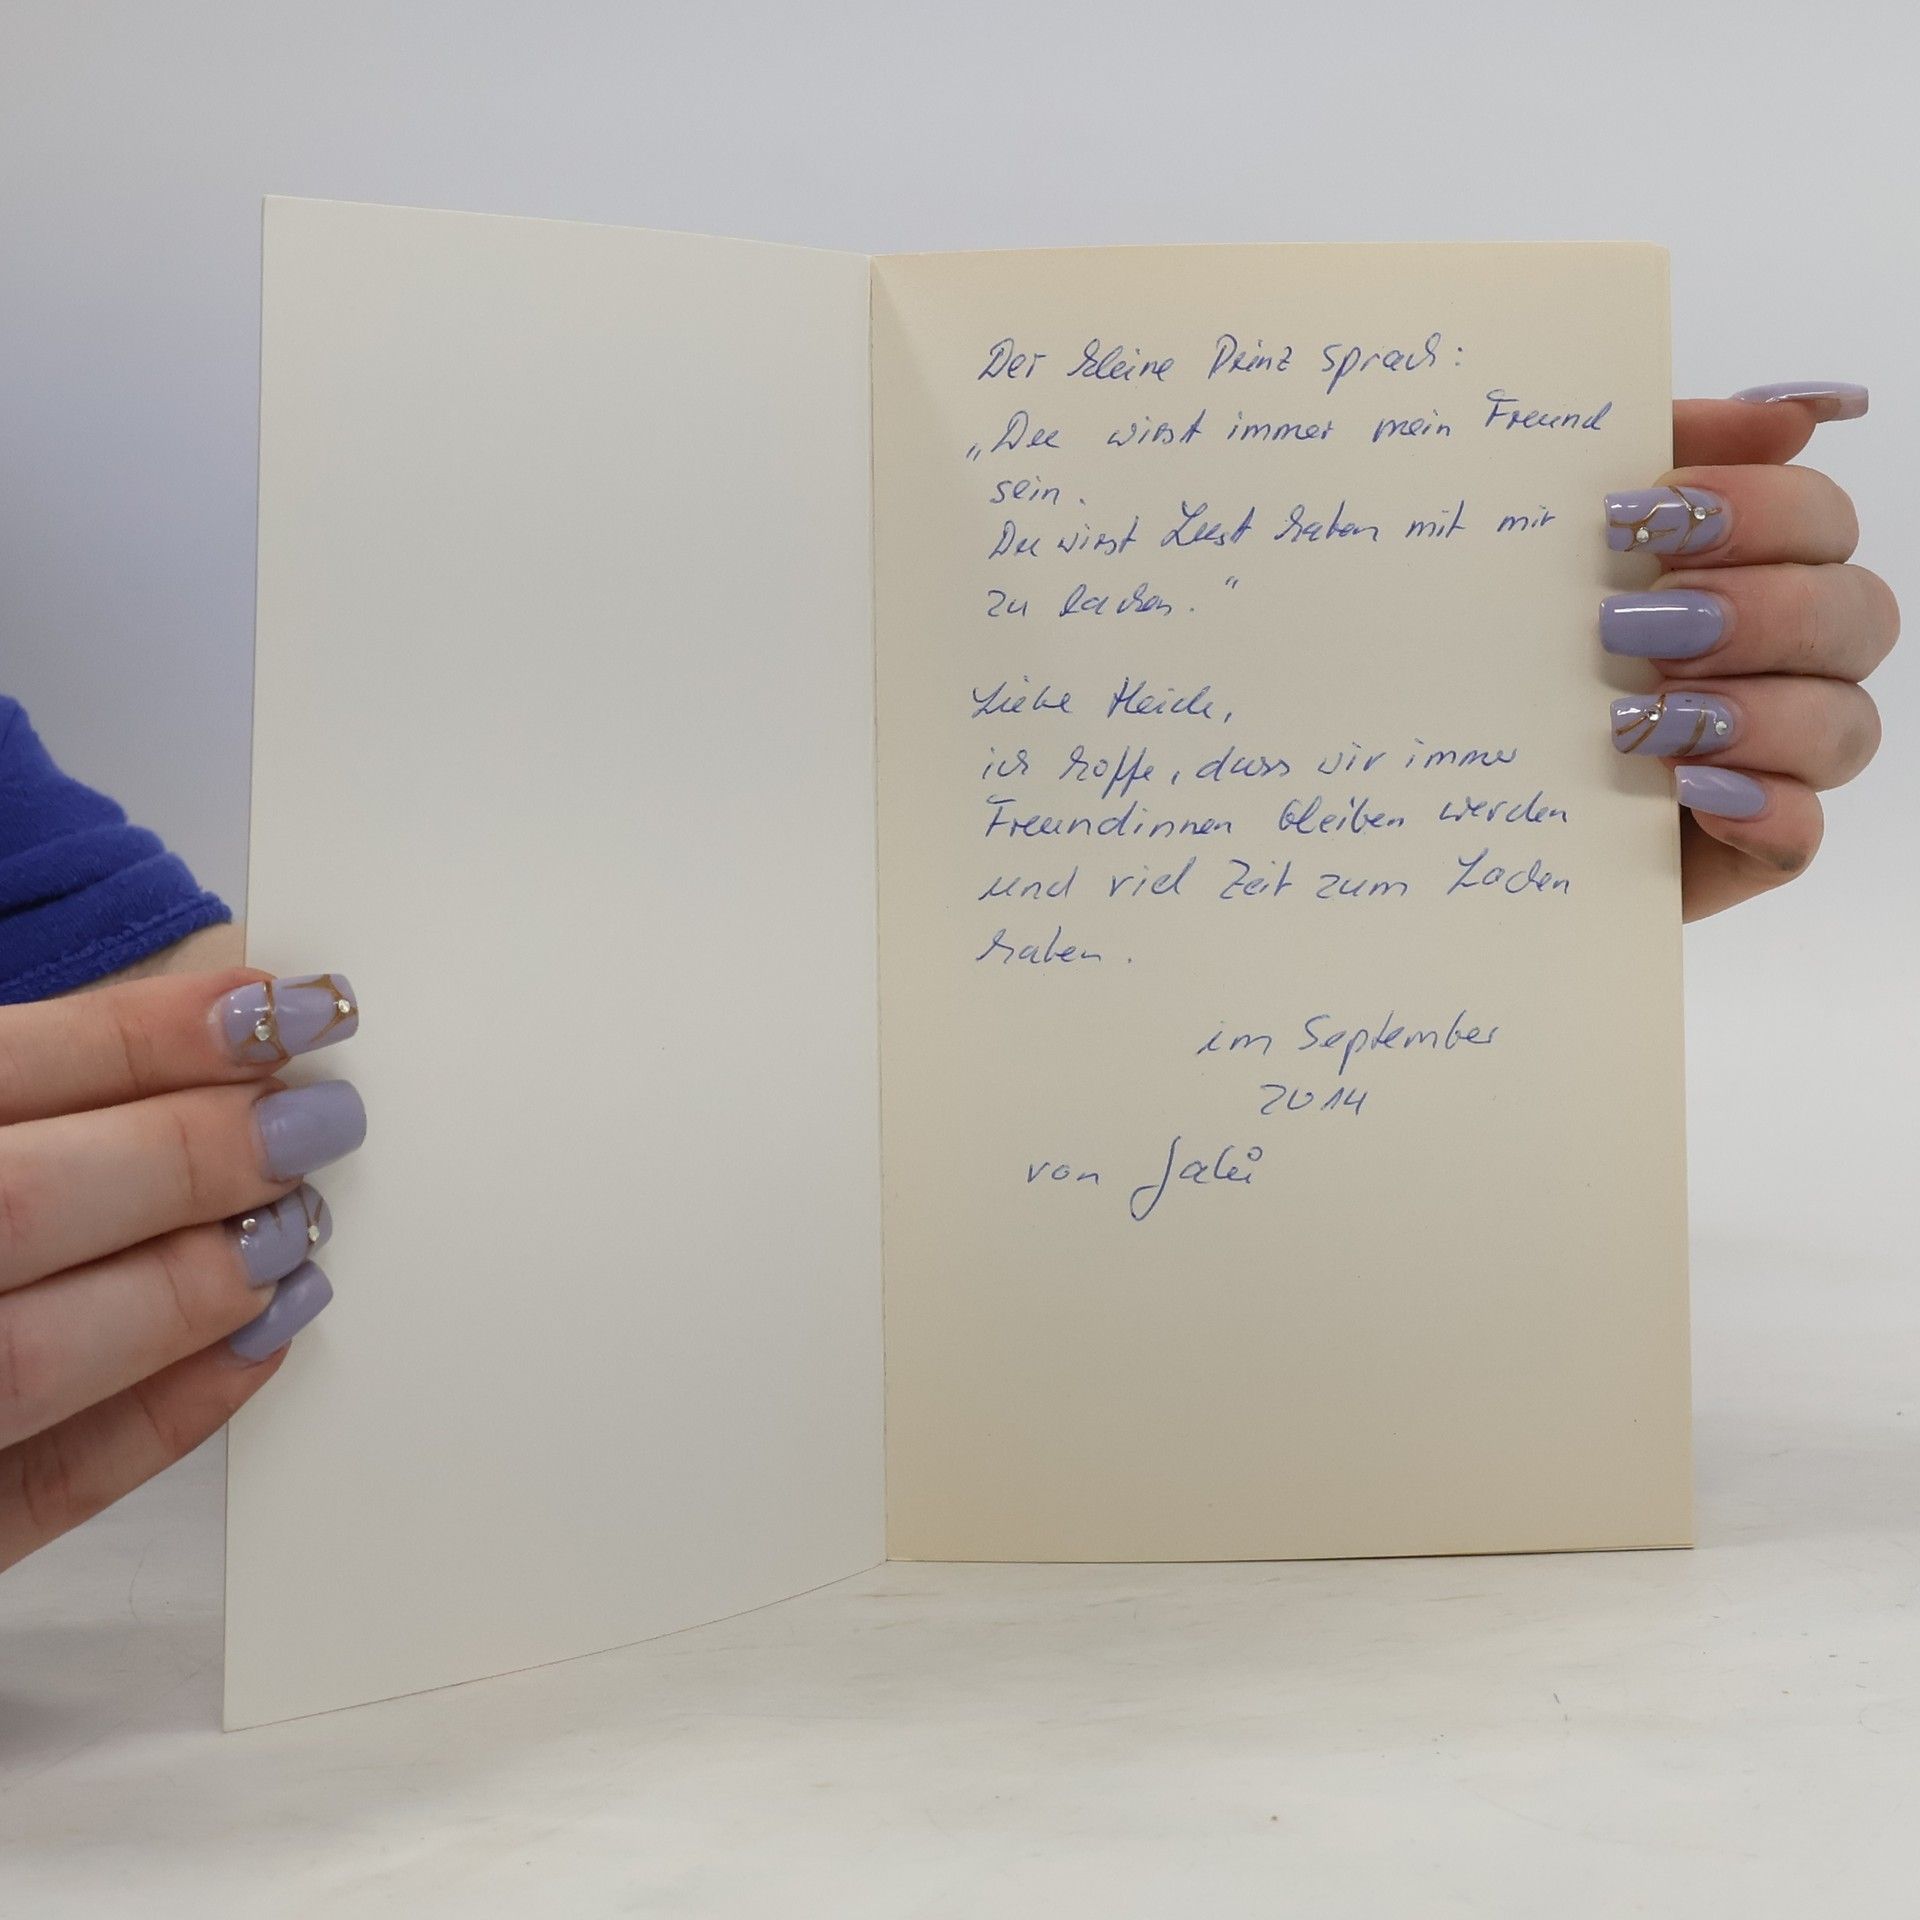 Der kleine Prinz sprach:
„Du wirst immer mein Freund
sein.
Du wirst Lust haben mit mir
zu lachen."
Liebe Heide,
ich hoffe, dass wir immer
Freundinnen bleiben werden
und viel Zeit zum Lachen
haben.
im September
2014
von